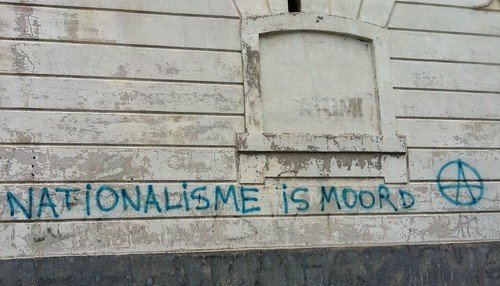 NATIONALISME IS MOORD Ⓐ